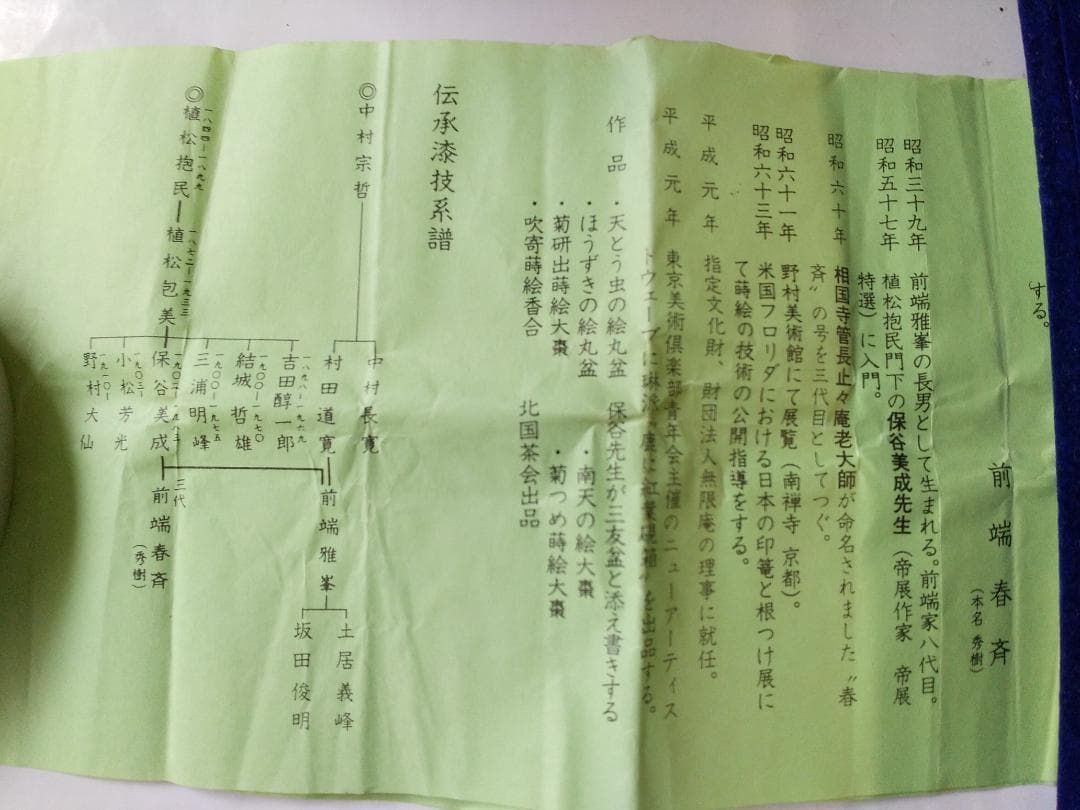 する。
前端春斉
（本名 秀樹）
昭和三十九年 前端雅峯の長男として生まれる。前端家八代目。
昭和五十七年 植松抱民門下の保谷美成先生（帝展作家 帝展
特選）に入門。
昭和六十年 相国寺管長止々庵老大師が命名されました〝春
斉〟の号を三代目としてつぐ。
昭和六十一年 野村美術館にて展覧（南禅寺 京都）。
昭和六十三年 米国フロリダにおける日本の印篭と根つけ展に
て蒔絵の技術の公開指導をする。
平成元年 指定文化財、財団法人無限庵の理事に就任。
平成元年 東京美術倶楽部青年会主催のニューアーティス
トウェーブに を出品する。
作品 ・天とう虫の絵丸盆 保谷先生が三友盆と添え書きする
・ほうずきの絵丸盆 ・南天の絵大棗
・菊研出蒔絵大棗 ・菊つめ蒔絵大棗
・吹寄蒔絵香合 北国茶会出品
伝承漆技系譜
◎中村宗哲
中村長寛
村田道寛
前端雅峯
土居義峰
坂田俊明
◎植松抱民
一八四四―一八九九
植松包美
一八七二―一九三三
吉田醇一郎
一八九八―一九六九
結城哲雄
一九〇〇―一九七〇
三浦明峰
一九〇〇―一九七五
保谷美成
小松芳光
一九〇三―
野村大仙
一九一〇―
三代
前端春斉
（秀樹）